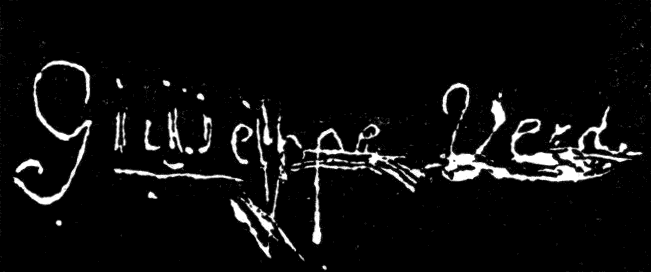 Giuseppe Verdi